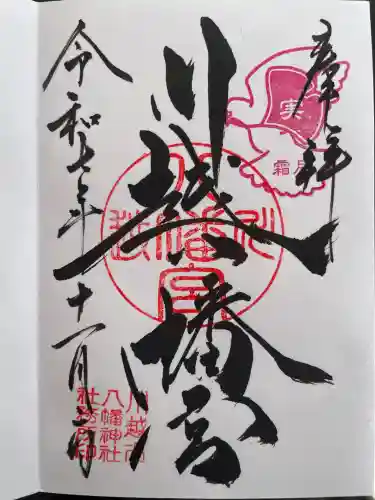 奉拝
実
霜月
川越八幡宮
川越八幡宮
川越市
八幡神社
社務所印
令和七年十一月